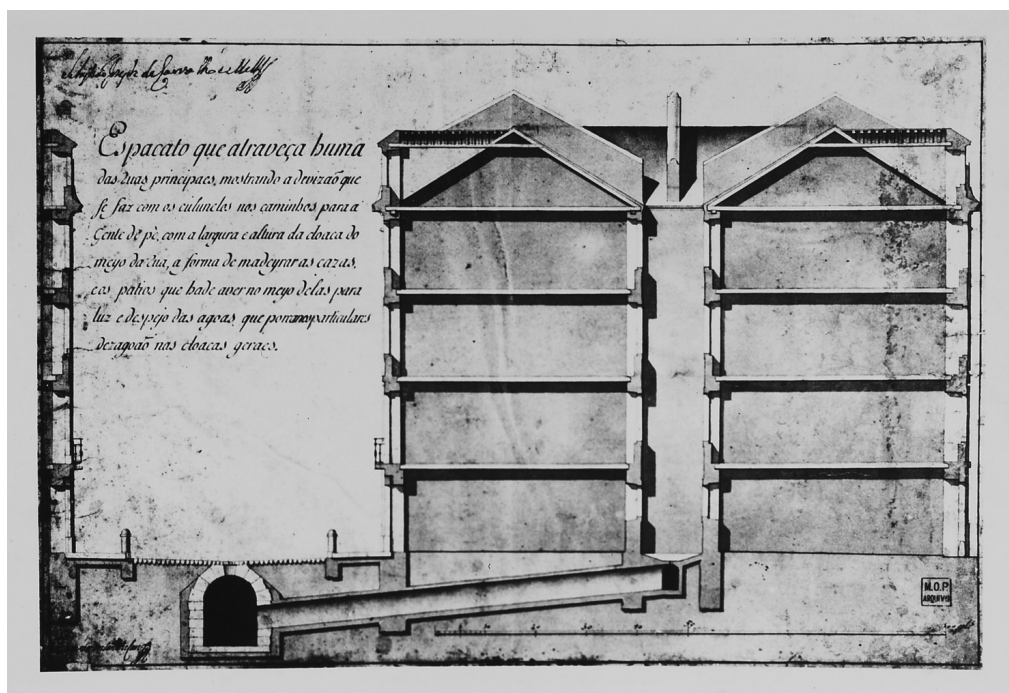 Sebastião Joseph de Carvalho e Mello
Espacato que atraveça huma
das ruas principaes, mostrando a devizaõ que
se faz com os culunelos nos caminhos para a
Gente de pè, com a largura e altura da cloaca do
meyo da rua, a forma de madeyrar as cazas,
e os patios que hade aver no meyo delas para
luz e despejo das agoas, que por canos particulares
dezagoaõ nas cloacas geraes.
M.O.P.
ARQUIVO